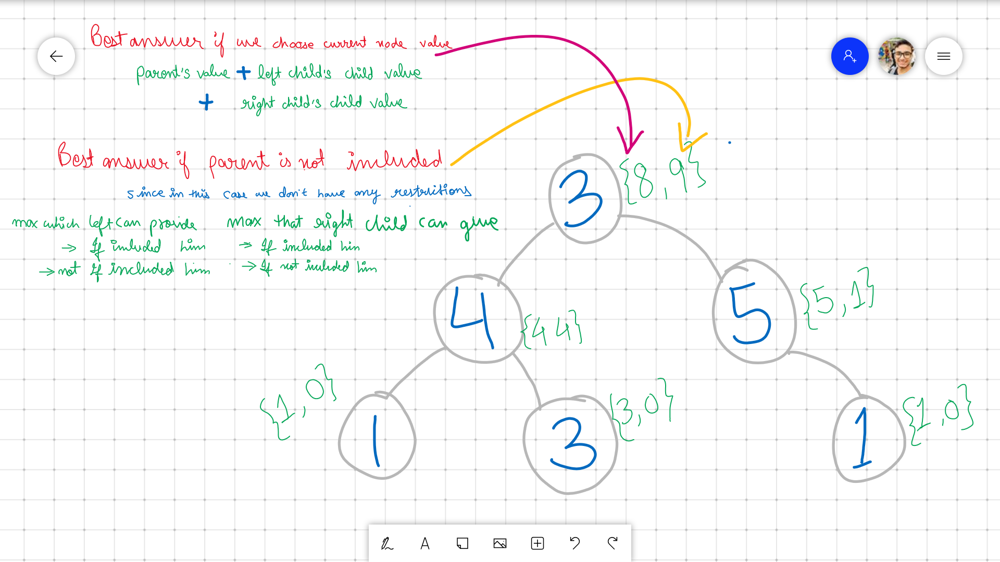 Best answer if we choose current node value
parent's value + left child's child value
+ right child's child value
Best answer if parent is not included
since in this case we don't have any restritions
max which left can provide
→ If included him
→ not If included him
max that right child can give
→ If included him
→ If not included him
3 {8,9}
4 {4 4}
5 {5,1}
1 {1,0}
3 {3,0}
1 {1,0}
A